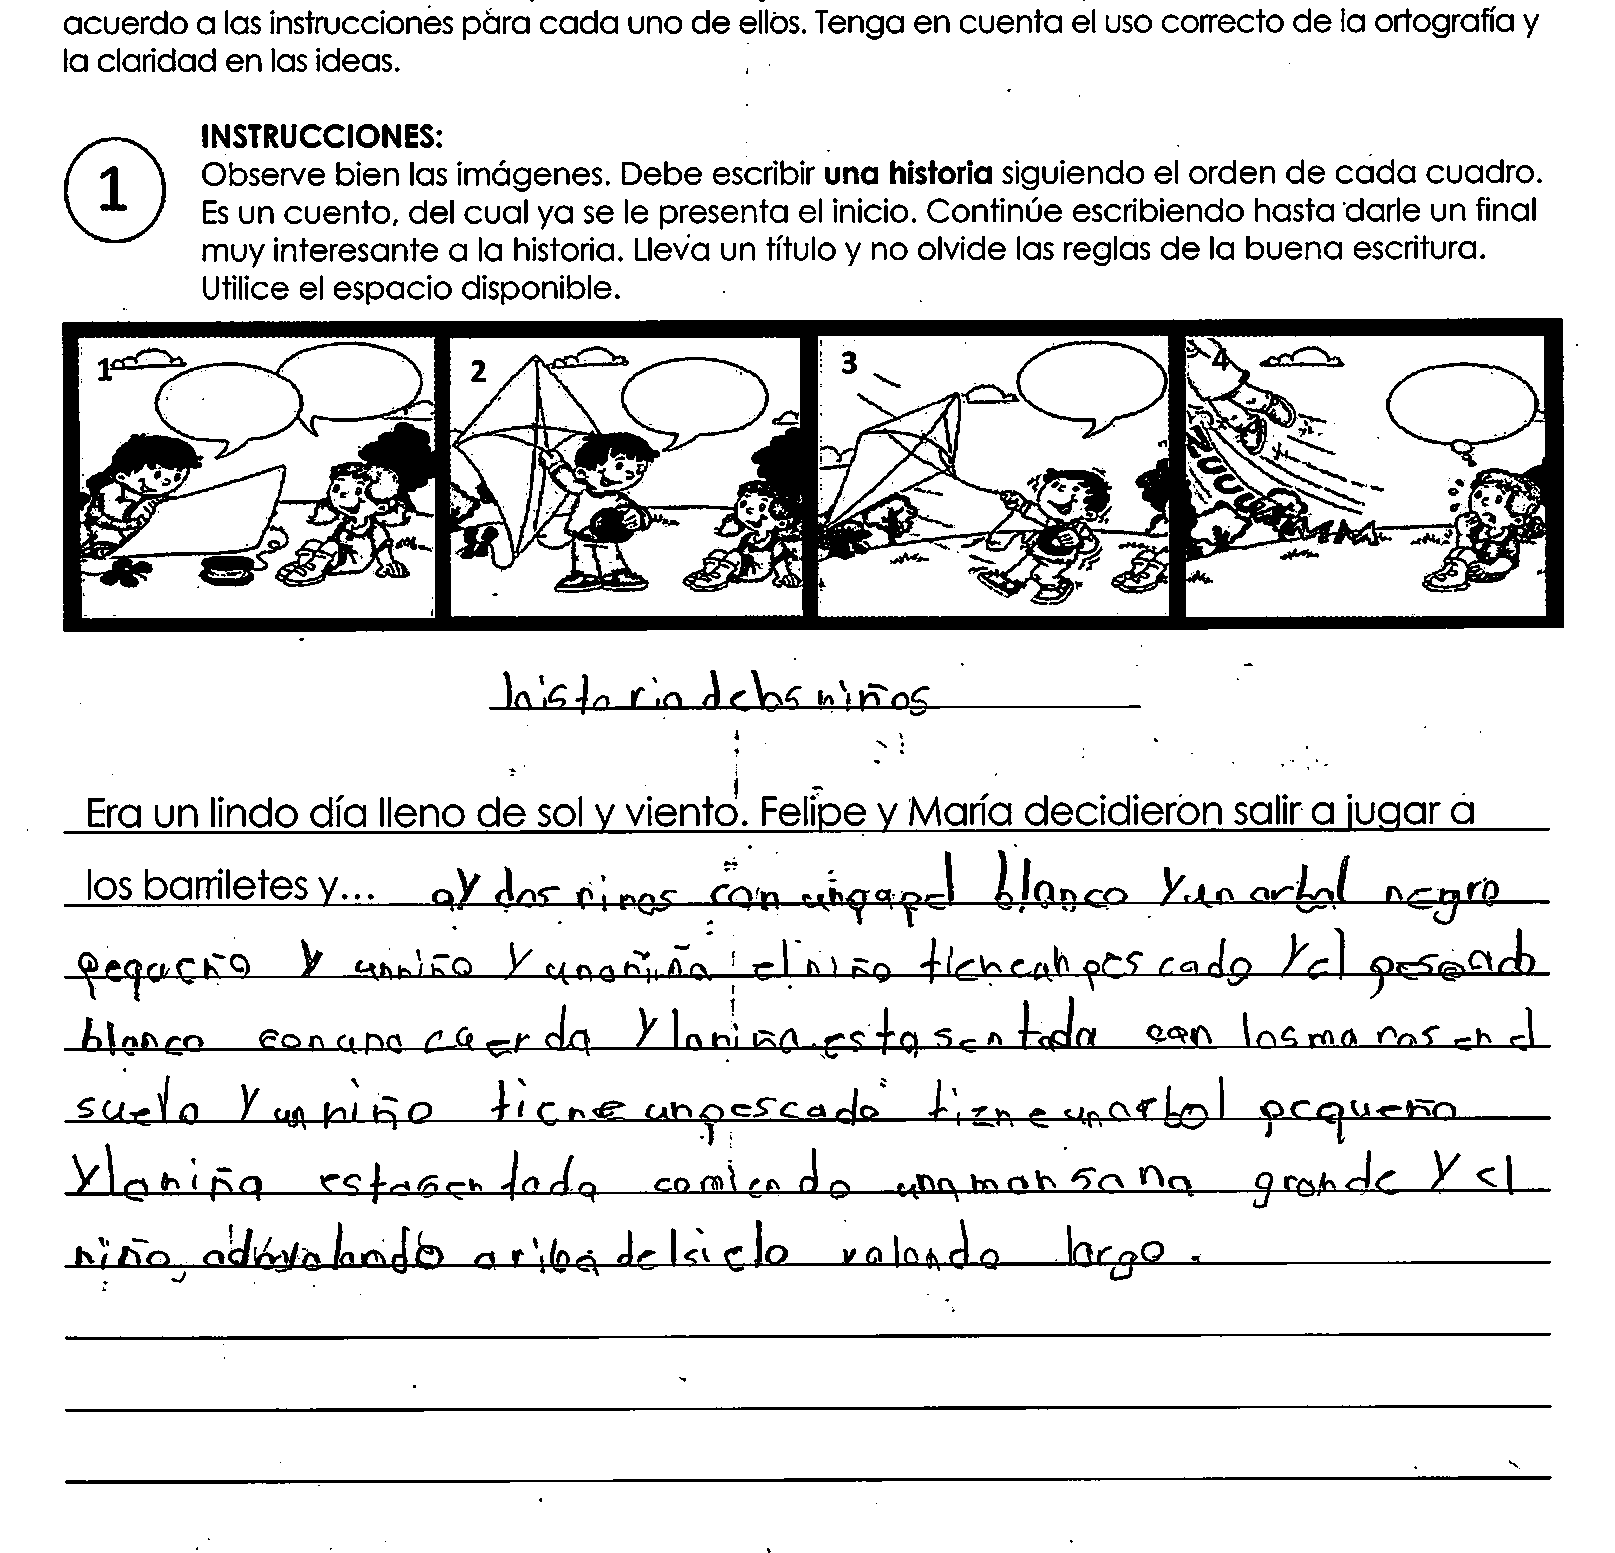 acuerdo a las instrucciones para cada uno de ellos. Tenga en cuenta el uso correcto de la ortografía y
la claridad en las ideas.
1
INSTRUCCIONES:
Observe bien las imágenes. Debe escribir una historia siguiendo el orden de cada cuadro.
Es un cuento, del cual ya se le presenta el inicio. Continúe escribiendo hasta darle un final
muy interesante a la historia. Lleva un título y no olvide las reglas de la buena escritura.
Utilice el espacio disponible.
1 2 3 4
historia delos niños
Era un lindo día lleno de sol y viento. Felipe y María decidieron salir a jugar a
los barriletes y... ay dos ninos con un papel blanco Y un arbol negro
pequeño y un niño Y una niña el niño tiene un pescado Y el pescado
blanco con una cuerda Y la niña esta sentada con las manos en el
suelo Y un niño tiene un pescado tiene un arbol pequeño
Y la niña esta sentada comiendo una mansana grande Y el
niño, volando ariba del sielo valando largo.